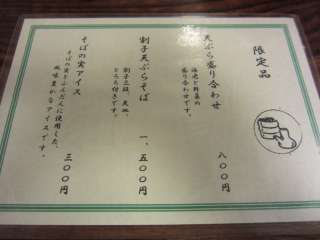 限定品
天ぷら盛り合わせ
海老と野菜の
盛り合わせです。
八〇〇円
割子天ぷらそば
割子三段、天ぷら、
とろろ付きです。
一、五〇〇円
そばの実アイス
そばの実をふんだんに使用した、
風味豊かなアイスです。
三〇〇円